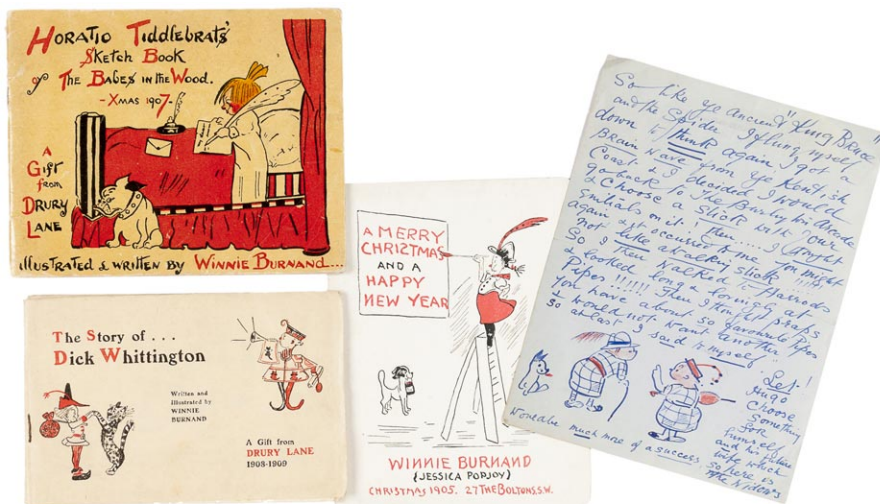 HORATIO TIDDLEBRAT'S
SKETCH BOOK
of THE BABES IN THE WOOD.
- XMAS 1907 -
A
GIFT
from
DRURY
LANE
ILLUSTRATED & WRITTEN BY WINNIE BURNAND...
The Story of . . .
Dick Whittington
Written and
Illustrated by
WINNIE
BURNAND
A Gift from
DRURY LANE
1908-1909
A MERRY
CHRISTMAS
AND A
HAPPY
NEW YEAR
WINNIE BURNAND
(JESSICA POPJOY)
CHRISTMAS 1905. 27 THE BOLTONS, S.W.
So like ye ancient "King Bruce"
and the Spider I flung myself
down to think again, I got a
Brain wave from ye Kentish
Coast & I decided I would
go back to The Burlington Arcade
& choose a stick with your
initials on it! then..... I thought
again & it occurred to me you might
not like a walking stick !!!!
So I then walked to Harrods
& looked long & lovingly at
Pipes !!!!!! Then I thought p'raps
you have about 50 favourite Pipes
& would not want another.
so at last I said to myself
Let!
Hugo
choose
something
for
himself
and his future
wife which
would be much more of a success.
so here is